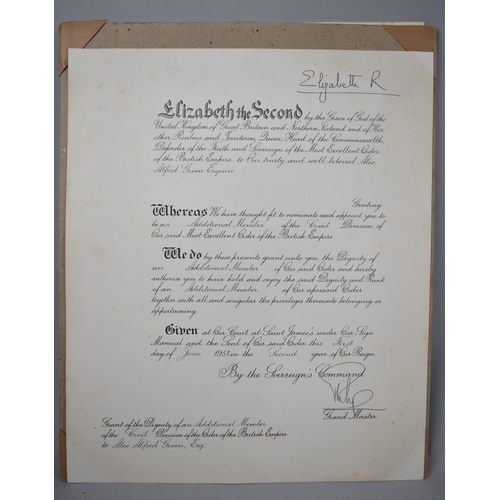 Elizabeth R
Elizabeth the Second by the Grace of God of the
United Kingdom of Great Britain and Northern Ireland and of Her
other Realms and Territories Queen, Head of the Commonwealth,
Defender of the Faith and Sovereign of the Most Excellent Order
of the British Empire, to Our trusty and well beloved Alec
Alfred Green Esquire
Greeting
Whereas We have thought fit to nominate and appoint you to
be an Additional Member of the Civil Division of
Our said Most Excellent Order of the British Empire
We do by these presents grant unto you the Dignity of
an Additional Member of Our said Order and hereby
authorise you to have hold and enjoy the said Dignity and Rank
of an Additional Member of Our aforesaid Order
together with all and singular the privileges thereunto belonging or
appertaining.
Given at Our Court at Saint James's under Our Sign
Manual and the Seal of Our said Order this First
day of June 1953 in the Second year of Our Reign
By the Sovereign's Command
Philip
Grand Master
Grant of the Dignity of an Additional Member
of the Civil Division of the Order of the British Empire
to Alec Alfred Green, Esq: